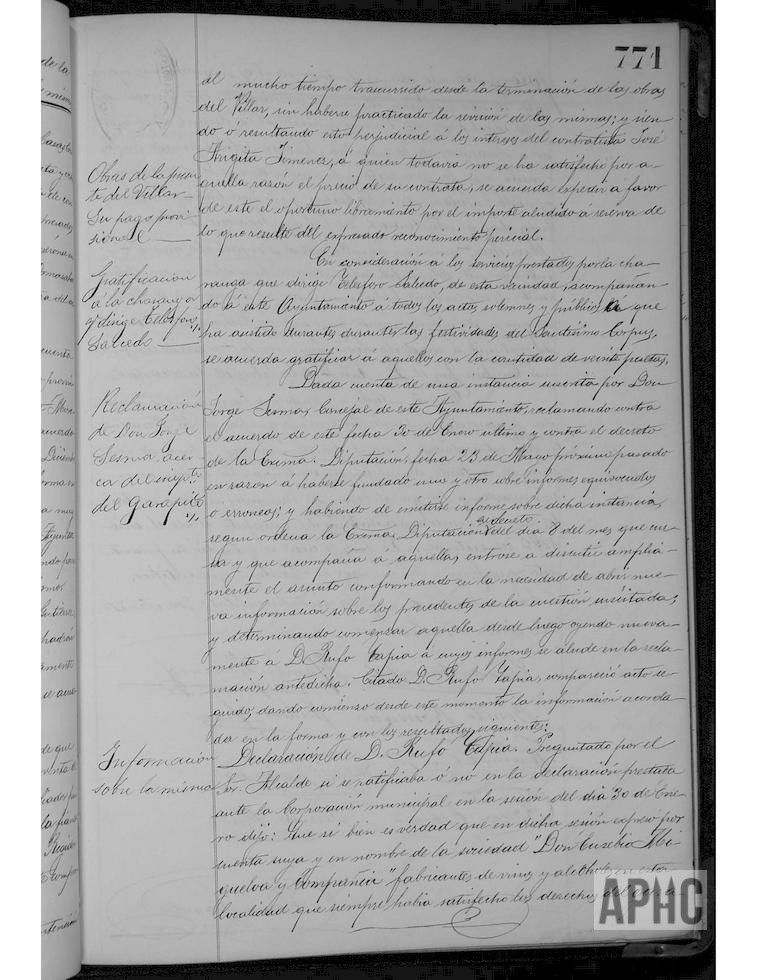 771
al mucho tiempo trascurrido desde la terminación de las obras
del Villar, sin haberse practicado la revición de las mismas; y sien-
do ó resultando esto perjudicial á los intereses del contratista José
Arigita Jimenez, á quien todavia no se ha satisfecho por a-
quella razón el precio de su contrata, se acuerda expedir a favor
de este el oportuno libramiento por el importe aludido á reserva de
lo que resulte del expresado reconocimiento pericial.
Obras de la
te del Villar
Su pago provi-
sional
En consideración á los servicios prestados por la cha-
ranga que dirige Telesforo Salcedo, de esta vecindad, acompañan-
do á este Ayuntamiento á todos los actos solemnes y públicos á que
ha asistido durantes durante las festividades del Santisimo Corpus,
se acuerda gratificar á aquellos con la cantidad de veinte pesetas.
Gratificación
á la charanga
q. dirige Telesforo
Salcedo
Dada cuenta de una instancia suscrita por Don
Jorge Sesma, Concejal de este Ayuntamiento, reclamando contra
el acuerdo de este fecha 30 de Enero último y contra el decreto
de la Exma. Diputación, fecha 23 de Mayo próximo pasado
en razon á haberse fundado uno y otro sobre informes equivocados
o erroneos; y habiendo de emitirse informe sobre dicha instancia,
segun ordena la Exma. Diputación en decreto del dia 8 del mes que cur-
sa y que acompaña á aquella, entrose a discutir amplia-
mente el asunto conformando en la necesidad de abrir nue-
va información sobre los precedentes de la cuestión suscitada;
y determinando comenzar aquella desde luego oyendo nueva-
mente á D. Rufo Tapia a cuyos informes se alude en la recla-
mación antedicha. Citado D. Rufo Tapia, compareció acto se-
guido, dando comienzo desde este momento la información acorda-
da en la forma y con los resultados siguientes:
Reclamación
de Don Jorge
Sesma, acer-
ca del
del Garapito
Declaración de D. Rufo Tapia. Preguntado por el
Sr. Alcalde si se ratificaba ó no en la declaración prestada
ante la Corporación municipal en la sesión del día 30 de Ene-
ro dijo: Que si bien es verdad que en dicha sesión expresó por
cuenta suya y en nombre de la sociedad "Don Eusebio
y Compañia" fabricantes de vinos y alcoholes en esta
localidad que siempre habia satisfecho los derechos del
Información
sobre la misma
APHC